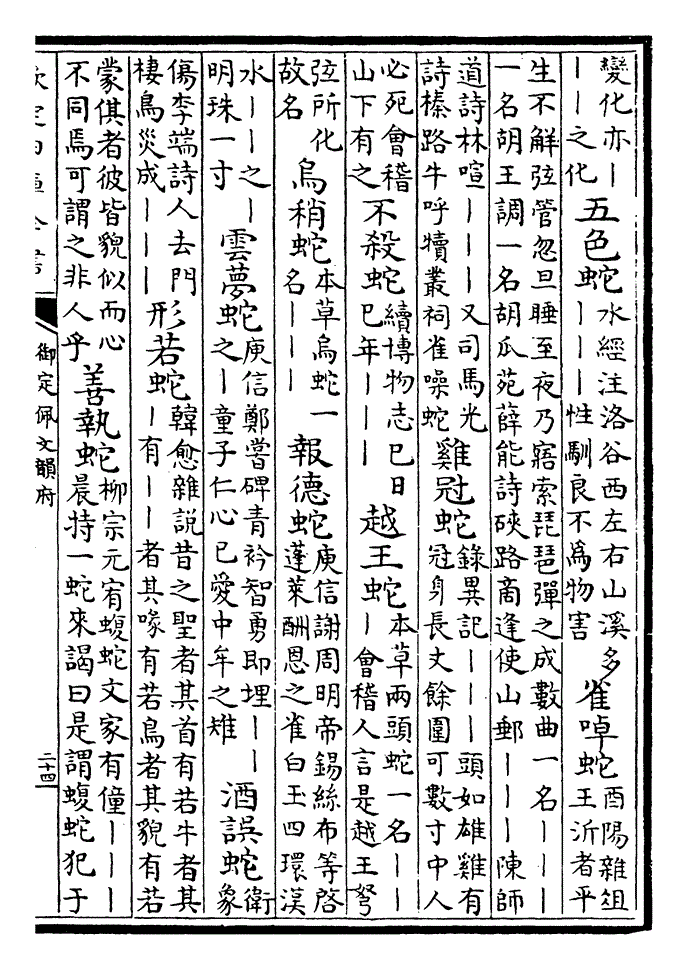 變化亦｜
｜｜之化
五色蛇
水經注洛谷西左右山溪多
｜｜｜性馴良不爲物害
雀啅蛇
酉陽雜俎
王沂者平
生不解弦管忽旦睡至夜乃寤索琵琶彈之成數曲一名｜｜｜
一名胡王調一名胡瓜苑薛能詩硤路商逢使山郵｜｜｜陳師
道詩林喧｜｜｜又司馬光
詩榛路牛呼犢叢祠雀噪蛇
雞冠蛇
錄異記｜｜｜頭如雄雞有
冠身長丈餘圍可數寸中人
必死會稽
山下有之
不殺蛇
續博物志巳日
巳年｜｜｜
越王蛇
本草兩頭蛇一名｜｜
｜會稽人言是越王弩
弦所化
故名
烏稍蛇
本草烏蛇一
名｜｜｜
報德蛇
庾信謝周明帝錫絲布等啓
蓬萊酬恩之雀白玉四環漢
水｜｜之｜
明珠一寸
雲夢蛇
庾信鄭嘗碑青衿智勇即埋｜｜
之｜童子仁心已愛中牟之雉
酒誤蛇
衛
象
傷李端詩人去門
棲鳥災成｜｜｜
形若蛇
韓愈雜說昔之聖者其首有若牛者其
｜有｜｜者其喙有若鳥者其貌有若
蒙倛者彼皆貌似而心
不同焉可謂之非人乎
善執蛇
柳宗元宥蝮蛇文家有僮｜｜｜
晨持一蛇來謁曰是謂蝮蛇犯于
欽定四庫全書
御定佩文韻府
二十四